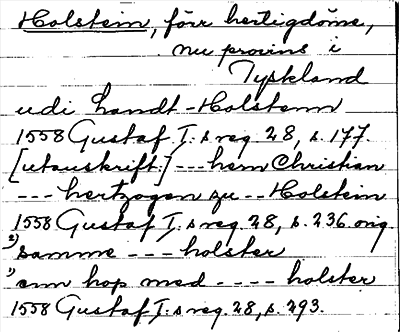 Holstein, förr hertigdöme,
nu provins i
Tyskland
udi landt-Holstenn
1558 Gustaf I:s reg. 28, s. 177.
[utanskrift:] --- hern Christian
--- hertzogen zu -- Holstein
1558 Gustaf I:s reg. 28, s. 236 orig.
2) samme --- holster
1) en hop med ---- holster
1558 Gustaf I:s reg. 28, s. 293.